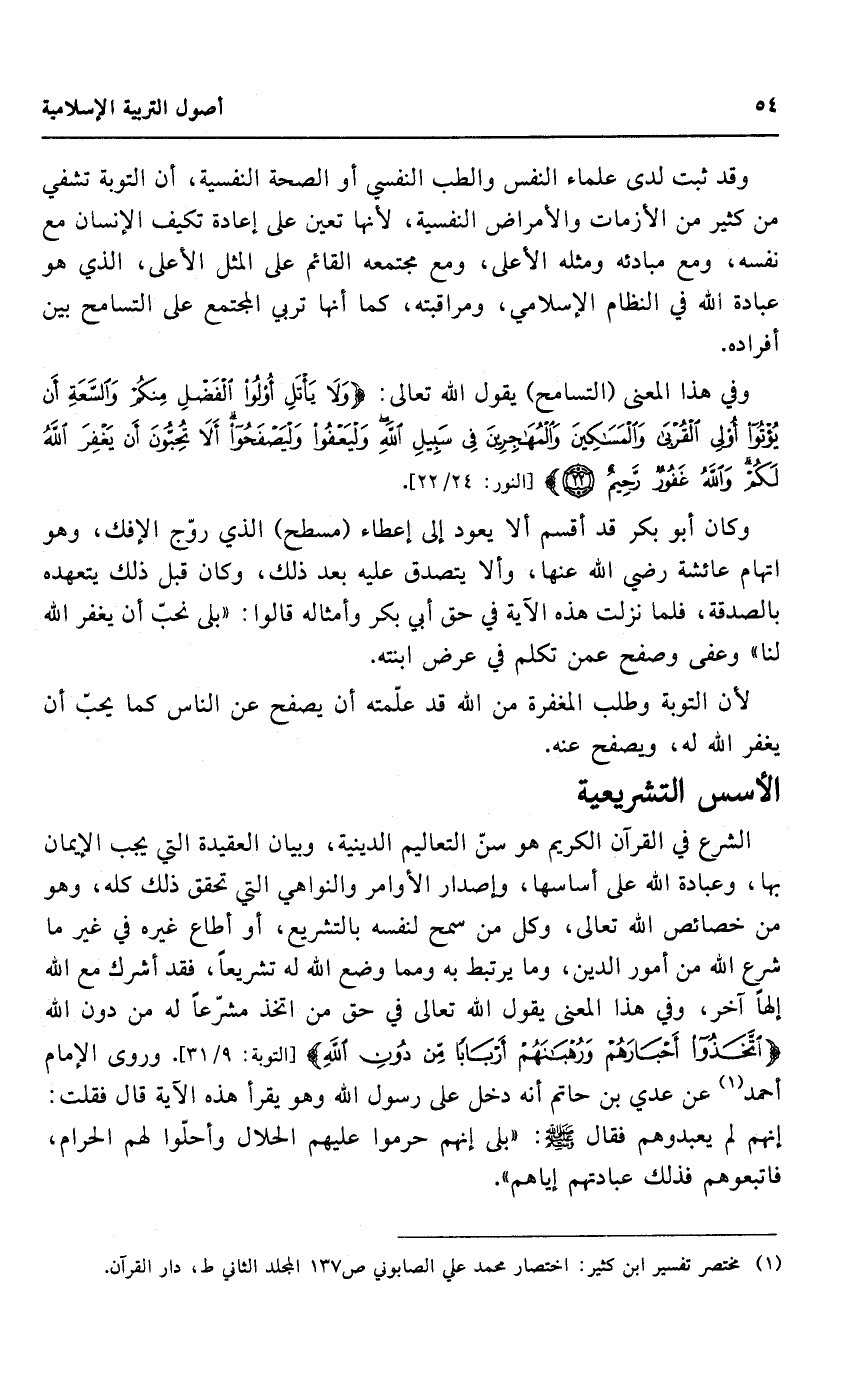 ٥٤ أصول التربية الإسلامية
وقد ثبت لدى علماء النفس والطب النفسي أو الصحة النفسية، أن التوبة تشفي
من كثير من الأزمات والأمراض النفسية، لأنها تعين على إعادة تكيف الإنسان مع
نفسه، ومع مبادئه ومثله الأعلى، ومع مجتمعه القائم على المثل الأعلى، الذي هو
عبادة الله في النظام الإسلامي، ومراقبته، كما أنها تربي المجتمع على التسامح بين
أفراده.
وفي هذا المعنى (التسامح) يقول الله تعالى: ﴿وَلَا يَأْتَلِ أُوْلُواْ ٱلْفَضْلِ مِنكُمْ وَٱلسَّعَةِ أَن
يُؤْتُوٓاْ أُوْلِي ٱلْقُرْبَىٰ وَٱلْمَسَٰكِينَ وَٱلْمُهَٰجِرِينَ فِي سَبِيلِ ٱللَّهِۖ وَلْيَعْفُواْ وَلْيَصْفَحُوٓاْۗ أَلَا تُحِبُّونَ أَن يَغْفِرَ ٱللَّهُ
لَكُمْۗ وَٱللَّهُ غَفُورٌ رَّحِيمٌ ٢٢﴾ [النور: ٢٢/٢٤].
وكان أبو بكر قد أقسم ألا يعود إلى إعطاء (مسطح) الذي روّج الإفك، وهو
اتهام عائشة رضي الله عنها، وألا يتصدق عليه بعد ذلك، وكان قبل ذلك يتعهده
بالصدقة، فلما نزلت هذه الآية في حق أبي بكر وأمثاله قالوا: «بلى نحبّ أن يغفر الله
لنا» وعفى وصفح عمن تكلم في عرض ابنته.
لأن التوبة وطلب المغفرة من الله قد علّمته أن يصفح عن الناس كما يحبّ أن
يغفر الله له، ويصفح عنه.
الأسس التشريعية
الشرع في القرآن الكريم هو سنّ التعاليم الدينية، وبيان العقيدة التي يجب الإيمان
بها، وعبادة الله على أساسها، وإصدار الأوامر والنواهي التي تحقق ذلك كله، وهو
من خصائص الله تعالى، وكل من سمح لنفسه بالتشريع، أو أطاع غيره في غير ما
شرع الله من أمور الدين، وما يرتبط به ومما وضع الله له تشريعاً، فقد أشرك مع الله
إلهاً آخر، وفي هذا المعنى يقول الله تعالى في حق من اتخذ مشرّعاً له من دون الله
﴿ٱتَّخَذُوٓاْ أَحْبَارَهُمْ وَرُهْبَٰنَهُمْ أَرْبَابًا مِّن دُونِ ٱللَّهِ﴾ [التوبة: ٣١/٩]. وروى الإمام
أحمد(١) عن عدي بن حاتم أنه دخل على رسول الله وهو يقرأ هذه الآية قال فقلت:
إنهم لم يعبدوهم فقال ﷺ: «بلى إنهم حرموا عليهم الحلال وأحلّوا لهم الحرام،
فاتبعوهم فذلك عبادتهم إياهم».
(١) مختصر تفسير ابن كثير: اختصار محمد علي الصابوني ص١٣٧ المجلد الثاني ط، دار القرآن.